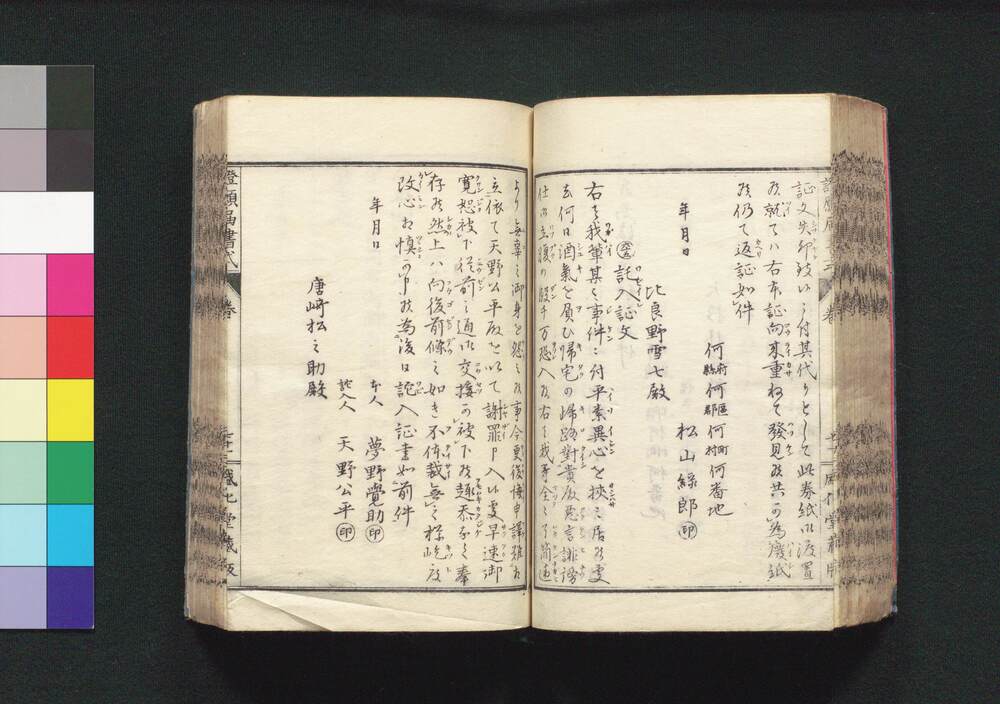 証文失却致候ニ付其代りとして此券紙以渡置
候就てハ右本証向来重ねて發見候共可為廢紙
候仍て返証如件
年月日
何府縣何區郡何町村何番地
松山綠郎 印
比良野雪七殿
詫入証文
右ハ我輩某々事件ニ付平素異心を挾ミ居候處
去何日酒氣を負ひ帰宅の帰路對貴殿惡言誹謗
仕候立腹の段千万恐入候右ハ我等全ク了簡違
より無辜之御身を怨ミ候事今更後悔申譯難相
立依て天野公平殿を以て謝罪申入候處早速御
寛恕被下従前之通以交接可被下候趣忝なく奉
存候然上ハ向後前條之如き不体裁無之様屹度
改心相慎可申候為後日詫入証書如前件
年月日
本人 夢野覺助 印
詫人 天野公平 印
唐崎松之助殿
證願届書式
卷
織七堂藏版